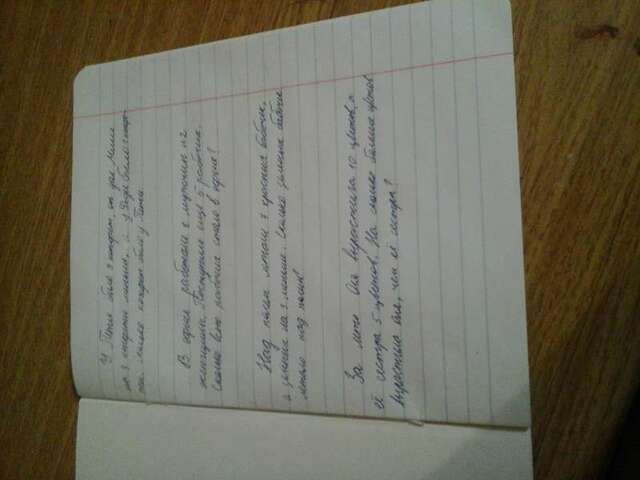 У Пети было 9 конфет, он дал Мише
на 3 конфеты меньше, а у Феди было 2 конфе-
ты. Сколько конфет было у Пети.
В офисе работали 8 мужчин и 2
женщины. Поступило еще 5 рабочих.
Сколько всего рабочих стало в офисе?
Над полем летали 7 красных бабочек,
а зеленых на 3 меньше. Сколько зеленых бабочек
летало над полем?
За лето Оля вырастила 10 цветов, а
её сестра 5 цветов. На сколько больше цветов
вырастила Оля, чем её сестра?